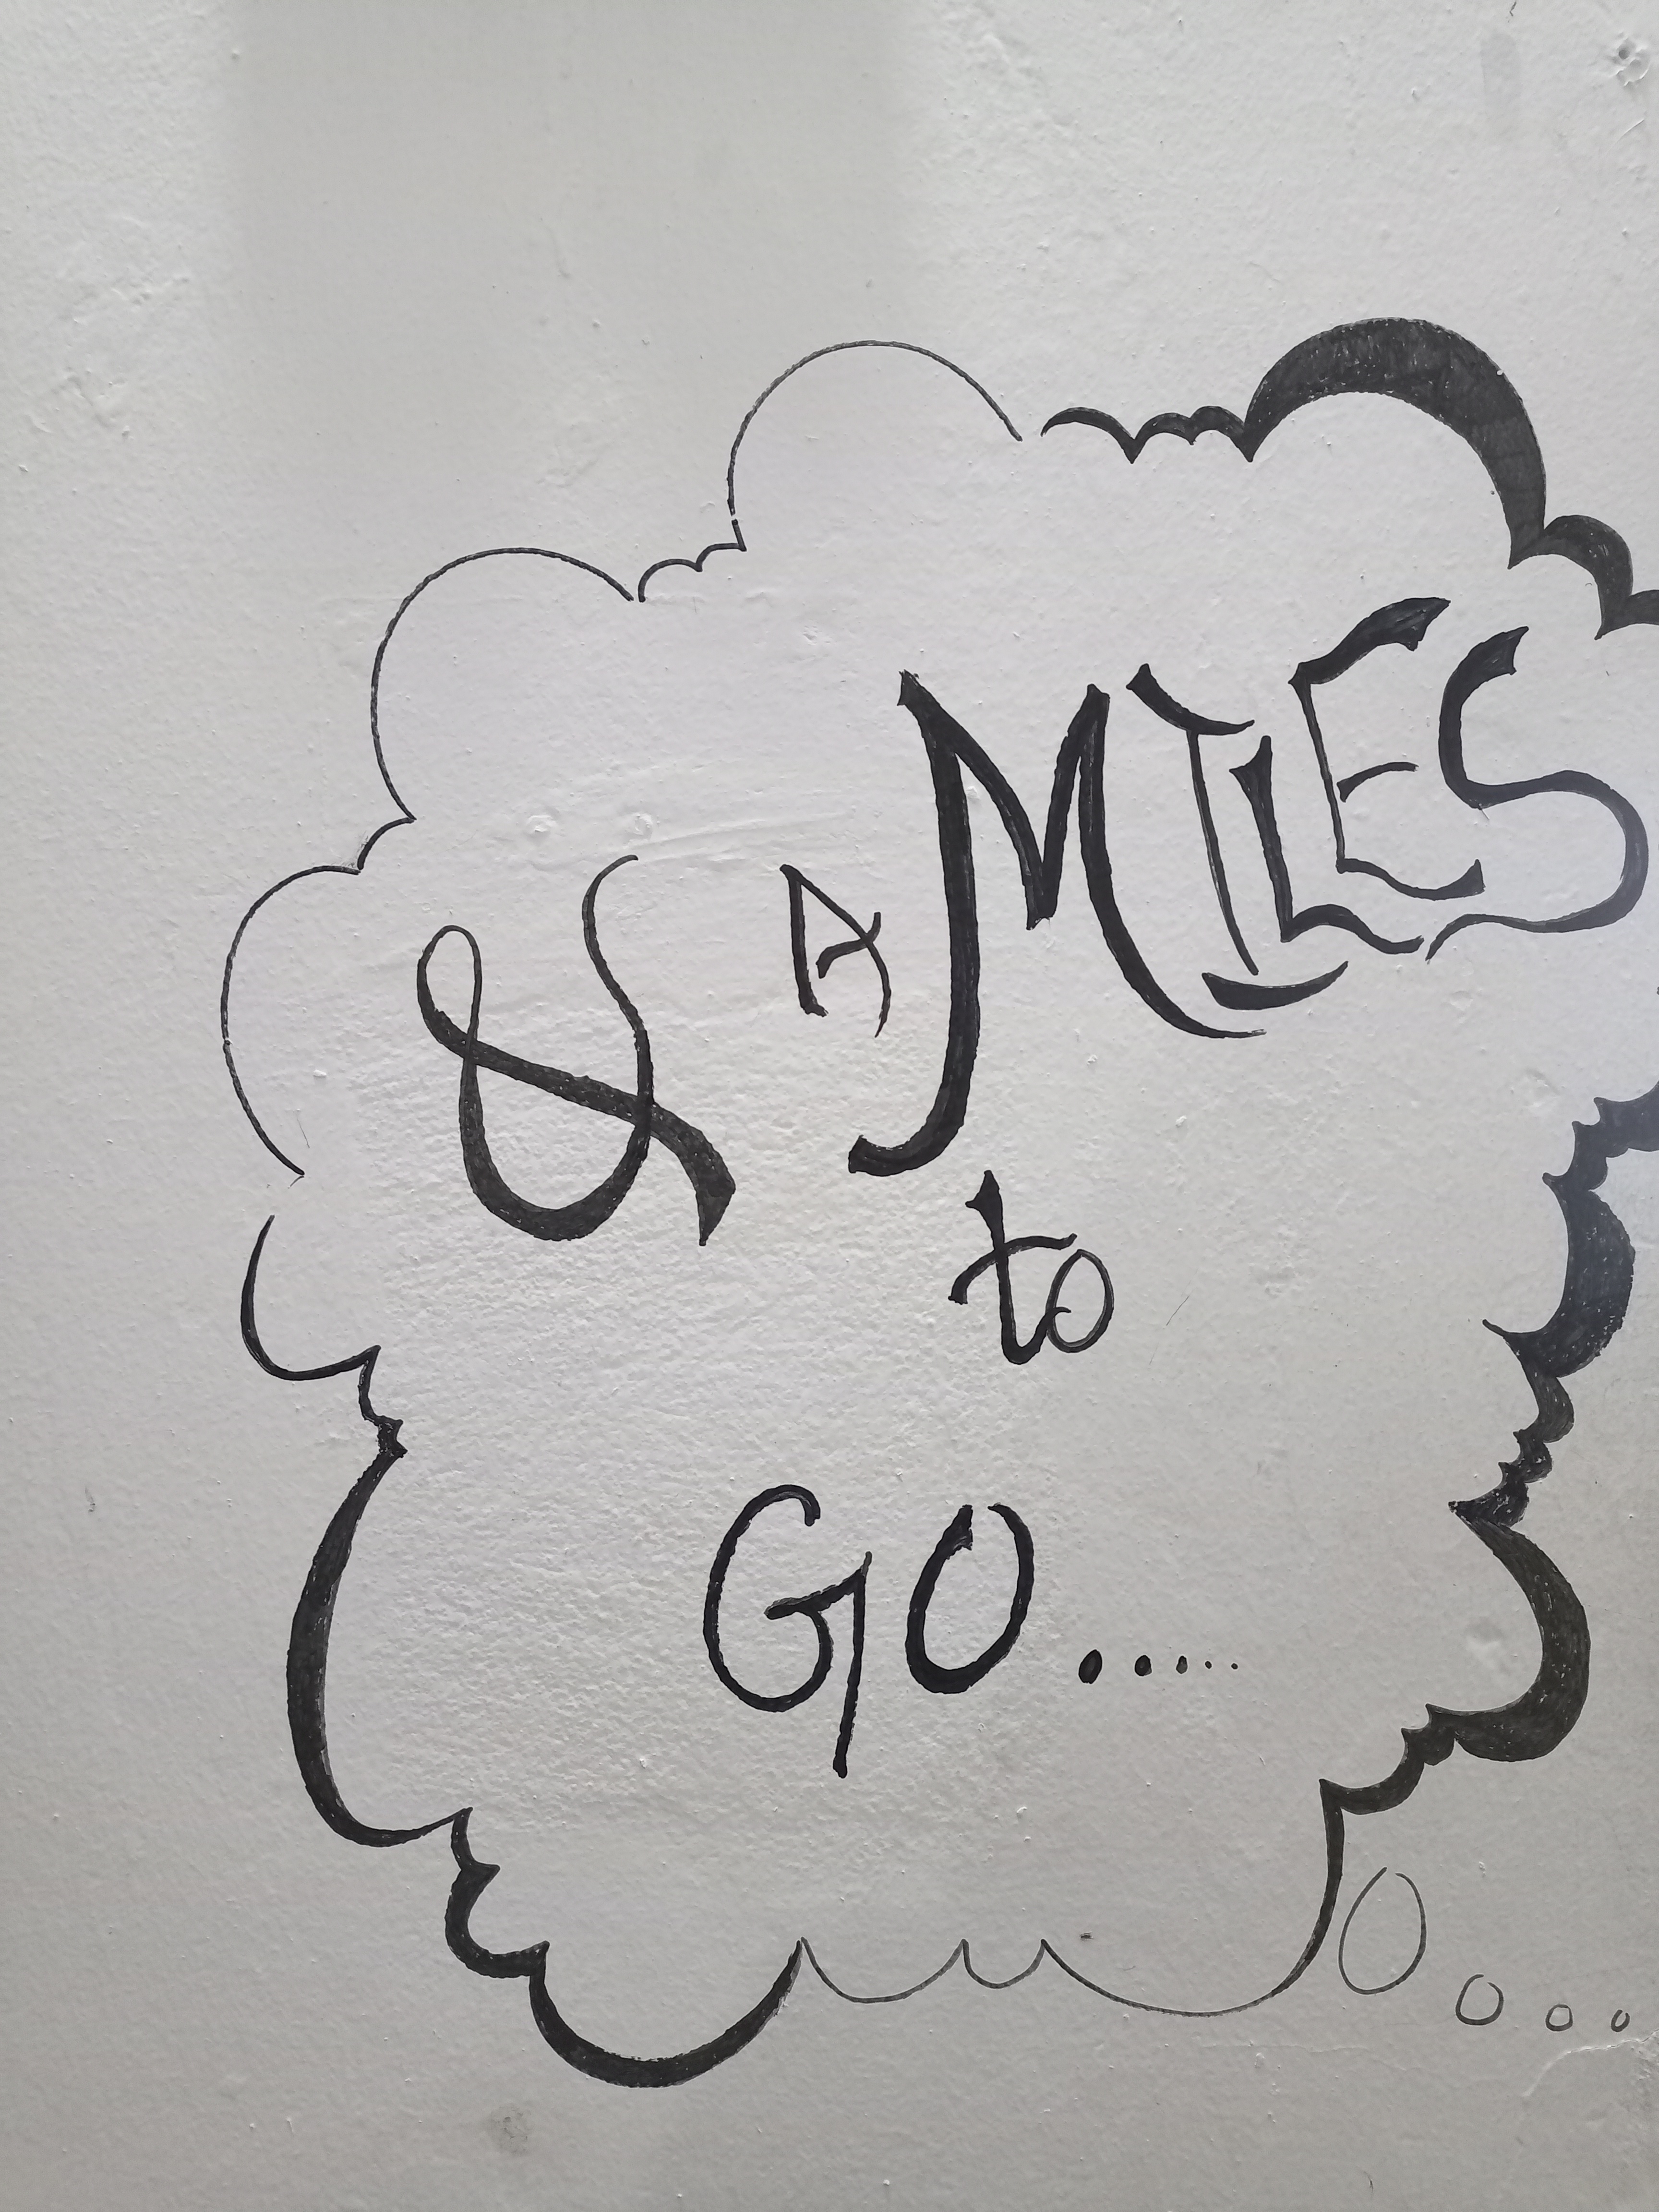 & A MILES
to
GO.....